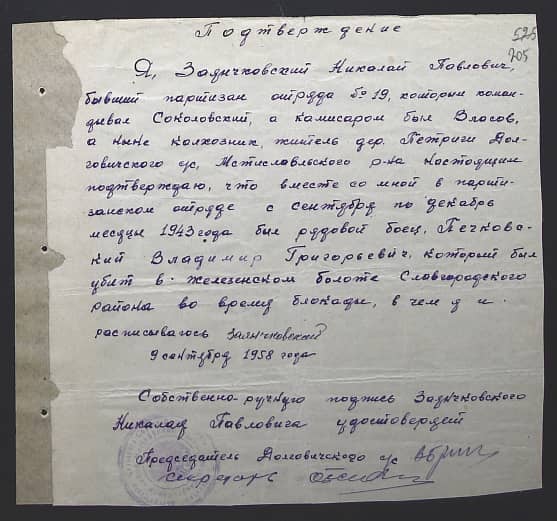 Подтверждение
525
705
Я, Заячковский Николай Павлович,
бывший партизан отряда № 19, которым коман-
дывал Соколовский, а камисаром был Власов,
а ныне колхозник, житель дер. Петриги Дол-
говичского с/с, Мстиславльского р-на настоящим
подтверждаю, что вместе со мной в парти-
занском отряде с сентября по декабрь
месяцы 1943 года был рядовой боец, Печков-
ский Владимир Григорьевич, который был
убит в железенском болоте Славгородского
района во время блокады, в чем я и
расписываюсь Заячковский
9 сентября 1958 года
Собственно-ручную подпись Заячковского
Николая Павловича удостоверяет
Председатель Долговичского с/с
Секретарь